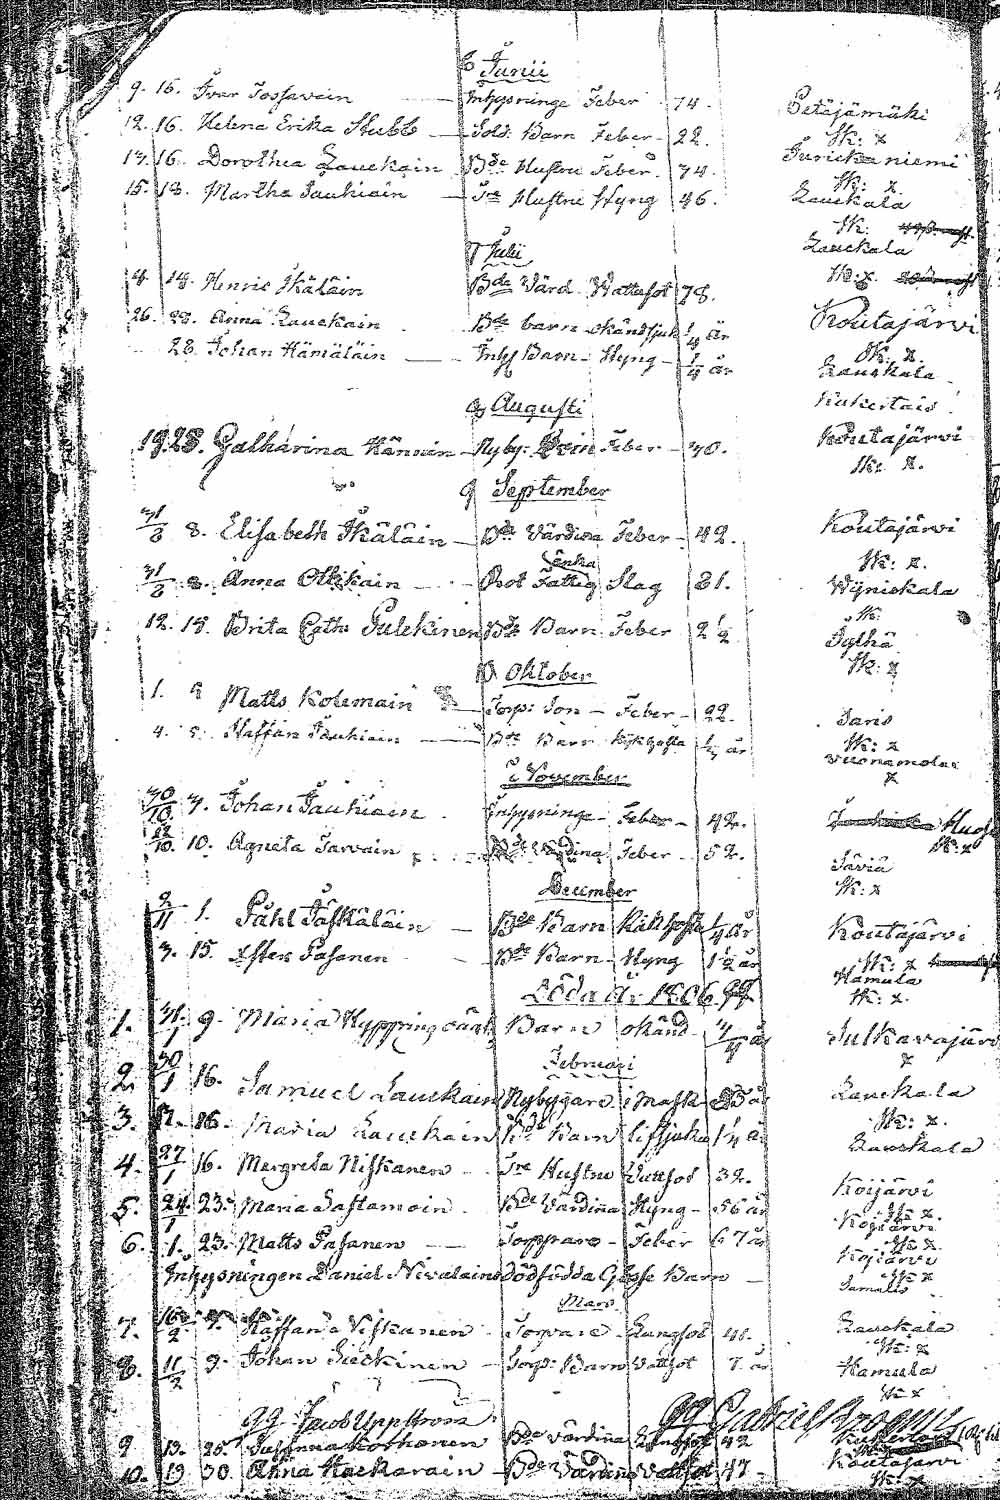 6 Junii
9. 15. Ivar Jossavain Inhysninge Feber 74. Petäjämäki
12. 16. Helena Erika Stubb Sold: Barn Feber 22. Sk: x
13. 16. Dorothea Lauckain Bde Hustru Feber. 74. Jurickaniemi
Sk: x
15. 18. Martha Jauhiain Hustru Hyng 46. Lauckala
Sk:
7 Julii Lauckala
4. 14. Henric Ikäläin Bde Värd Wattusot 78. Sk: x.
26. 28. Anna Lauckain Bde barn okändsjuk 1/4 år Koutajärvi
28. Johan Hämäläin Inhys Barn Hyng 1/4 år Sk: x.
Lauckala
8 Augusti Kukertais
19. 28. Catharina Hännin Nyby: Feber 30. Koutajärvi
Sk: x.
9 September
31/8 8. Elisabeth Ikäläin Bde Värdina Feber 42. Koutajärvi
Enka Sk: x.
31/8 8. Anna Ollikain Rot Fattig Slag 81. Wijniskala
Sk:
12. 15. Brita Cath: Pulckinen Bde Barn Feber 2 1/2 Jylhä
10 Oktober Sk: x
1. 5 Matts Kolemain Torp: Son Feber 22. Saris
4. 5. Staffan Jauhiain Bde Barn Kikhosta 1/4 år Sk: x
November
x
30/10 3. Johan Jauhiain Inhysninge Feber 42. Sk: x
22/10 10. Agneta Tarvain Bde Värdina Feber 52. Säviä
December Sk: x
2/11 1. Påhl Jäskäläin Bde Barn Kikhosta 1/4 år Koutajärvi
3. 15. Ester Pasanen Bde Barn Hyng 1 1/2 år Sk: x
Hamula
Döda År 1806. Sk: x.
1. 31/1 9. Maria Barn okänd 3/4 år Julkavajärv
Februari x
2. 30/1 16. Samuel Lauckain Nybyggare Lauckala
Sk: x.
3. 16. Maria Lauckain Bde Barn lifsjuka 1 1/4 år Lauckala
4. 27/1 16. Margreta Niskanen Hustru Vattsot 32. Koijärvi
Sk: x
5. 24/1 23. Maria Sastamoin Bde Värdina Hyng 56 år Koijärvi
Sk: x
6. 1. 23. Matts Pasanen Torppare Feber 67 år Koijärvi
Sk: x
Inhysningen Daniel Nivalains dödfödda Gosse Barn
Mars
7. 16/2 Staffan Niskanen Torpare Lungsot 41. Lauckala
Sk: x
8. 11/2 9. Johan Sieckinen Torp: Barn Vattsot 7 år Hamula
Sk: x
gg Jacob Uppstrom gg Gabriel
9 13. 25. Susanna Korhonen Bde Värdina Lungsot 42
10. 19 30. Anna Kackarain Bden Värdina Vattsot 47 Koutajärvi
Sk: x